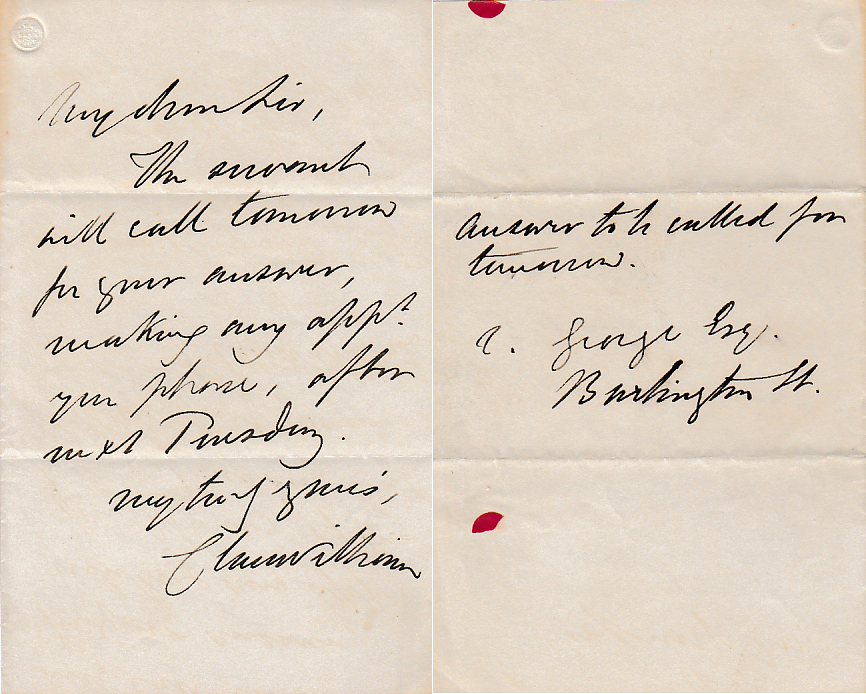 My dear Sir,
The servant
will call tomorrow
for your answer,
making any appt.
you please, after
next Tuesday.
very truly yours,
Clanwilliam
answer to be called for
tomorrow.
George Esq.
Burlington St.